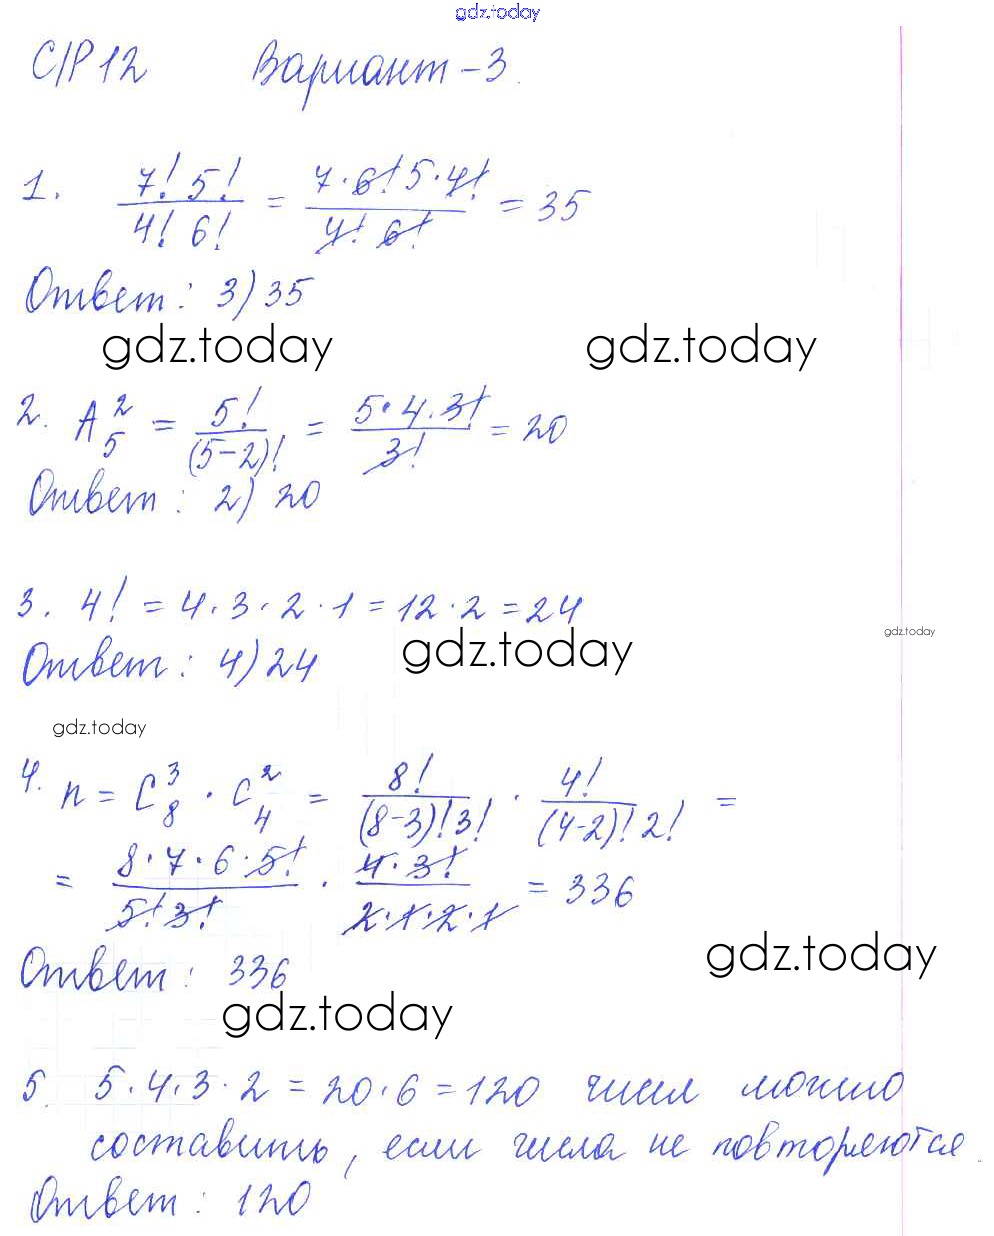 gdz.today
С/Р 12 Вариант - 3.
1. 7! 5! / 4! 6! = 7·6! 5·4! / 4! 6! = 35
Ответ: 3) 35
gdz.today gdz.today
2. A₅² = 5! / (5-2)! = 5·4·3! / 3! = 20
Ответ: 2) 20
3. 4! = 4·3·2·1 = 12·2 = 24
gdz.today
Ответ: 4) 24 gdz.today
gdz.today
4. n = C₈³ · C₄² = 8! / (8-3)! 3! · 4! / (4-2)! 2! =
= 8·7·6·5! / 5! 3! · 4·3! / 2·1·2·1 = 336
gdz.today
Ответ: 336
gdz.today
5. 5·4·3·2 = 20·6 = 120 чисел можно
составить, если числа не повторяются
Ответ: 120